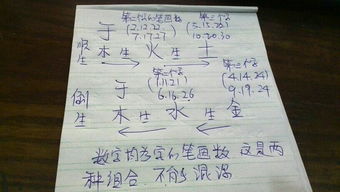 第二个字的笔画数 第三个字
顺生 于 (2.12.22 7.17.27) (5.15.25 10.20.30)
木生火生土
第三个字
倒生 于 (1.11.21 6.16.26) (4.14.24 9.19.24)
木生水生金
数字均为字的笔画数 这是两
种组合 不能混淆